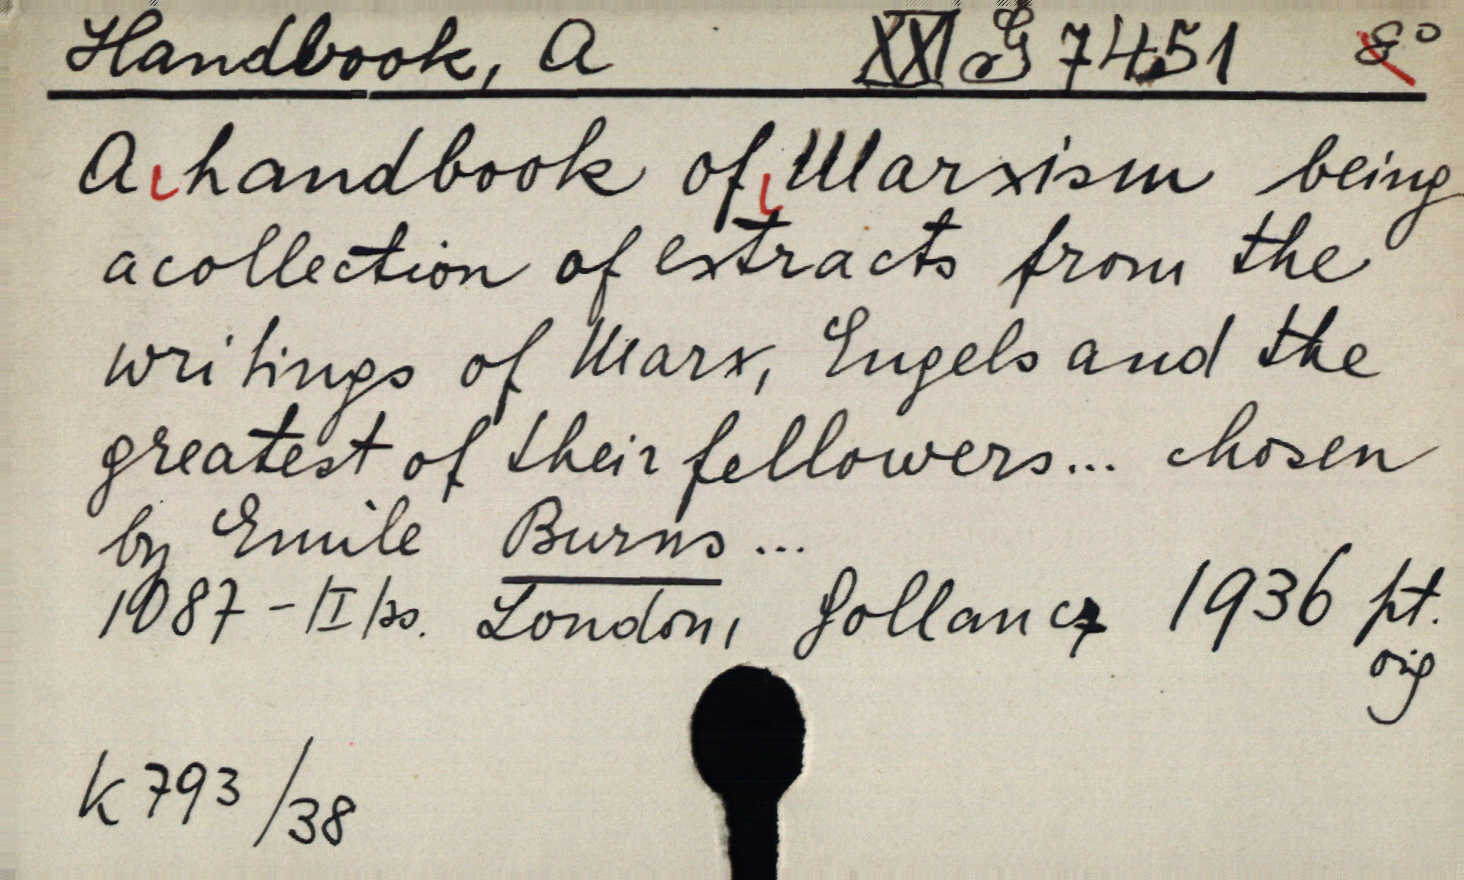 Handbook, A XXI G 7451 8°
A handbook of Marxism being
a collection of extracts from the
writings of Marx, Engels and the
greatest of their fellowers... chosen
by Emile Burns ...
1087 - |I| ss. London, Gollancz 1936 pt.
orig
K 793/38